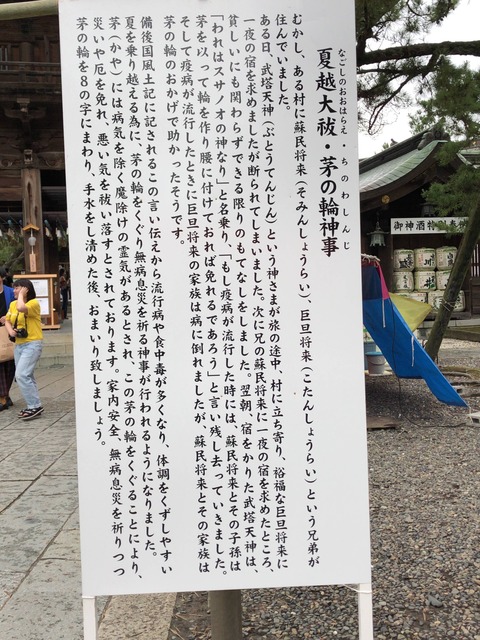 なごしのおおはらえ・ちのわしんじ
夏越大祓・茅の輪神事
むかし、ある村に蘇民将来（そみんしょうらい）、巨旦将来（こたんしょうらい）という兄弟が
住んでいました。
ある日、武塔天神（ぶとうてんじん）という神さまが旅の途中、村に立ち寄り、裕福な巨旦将来に
一夜の宿を求めましたが断られてしまいました。次に兄の蘇民将来に一夜の宿を求めたところ、
貧しいにも関わらずできる限りのもてなしをしました。翌朝、宿をかりた武塔天神は、
「われはスサノオの神なり」と名乗り、「もし疫病が流行した時には、蘇民将来とその子孫は
茅を以って輪を作り腰に付けておれば免れるであろう」と言い残し去っていきました。
そして疫病が流行したときに巨旦将来の家族は病に倒れましたが、蘇民将来とその家族は
茅の輪のおかげで助かったそうです。
備後国風土記に記されるこの言い伝えから流行病や食中毒が多くなり、体調をくずしやすい
夏を乗り越える為に、茅の輪をくぐり無病息災を祈る神事が行われるようになりました。
茅（かや）には病気を除く魔除けの霊気があるとされ、この茅の輪をくぐることにより、
災いや厄を免れ、悪い気を祓い落すとされております。家内安全、無病息災を祈りつつ
茅の輪を８の字にまわり、手水をし清めた後、おまいり致しましょう。
御神酒特別奉献